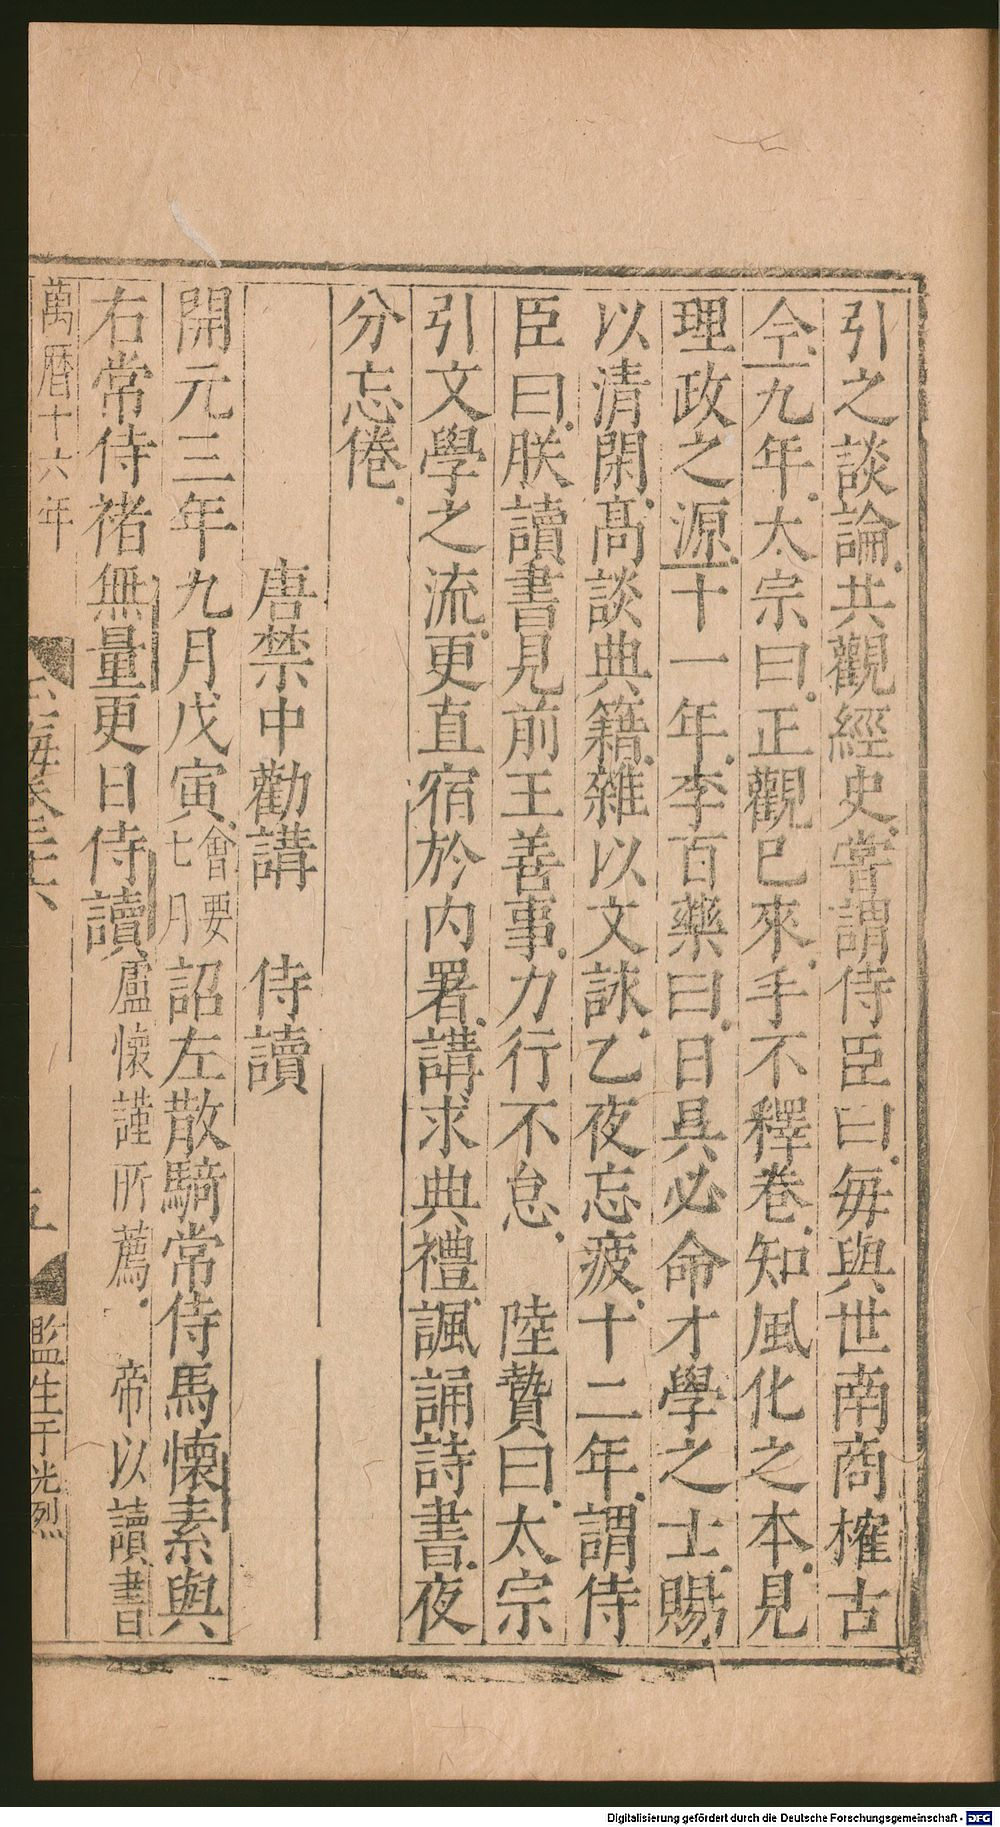 引之談論共觀經史嘗謂侍臣曰毎與世南商榷古
今九年太宗曰正觀已來手不釋卷知風化之本見
理政之源十一年李百藥曰日具必命才學之士賜
以清閑髙談典籍雜以文詠乙夜忘疲十二年謂侍
臣曰朕讀書見前王善事力行不怠　陸贄曰太宗
引文學之流更直宿於内署講求典禮諷誦詩書夜
分忘倦
唐禁中勸講　侍讀
開元三年九月戊寅會要七月詔左散騎常侍馬懷素與
右常侍褚無量更日侍讀盧懷謹所薦　帝以讀書
萬曆十六年　海卷二十六　五　監生于光烈
Digitalisierung gefördert durch die Deutsche Forschungsgemeinschaft - DFG